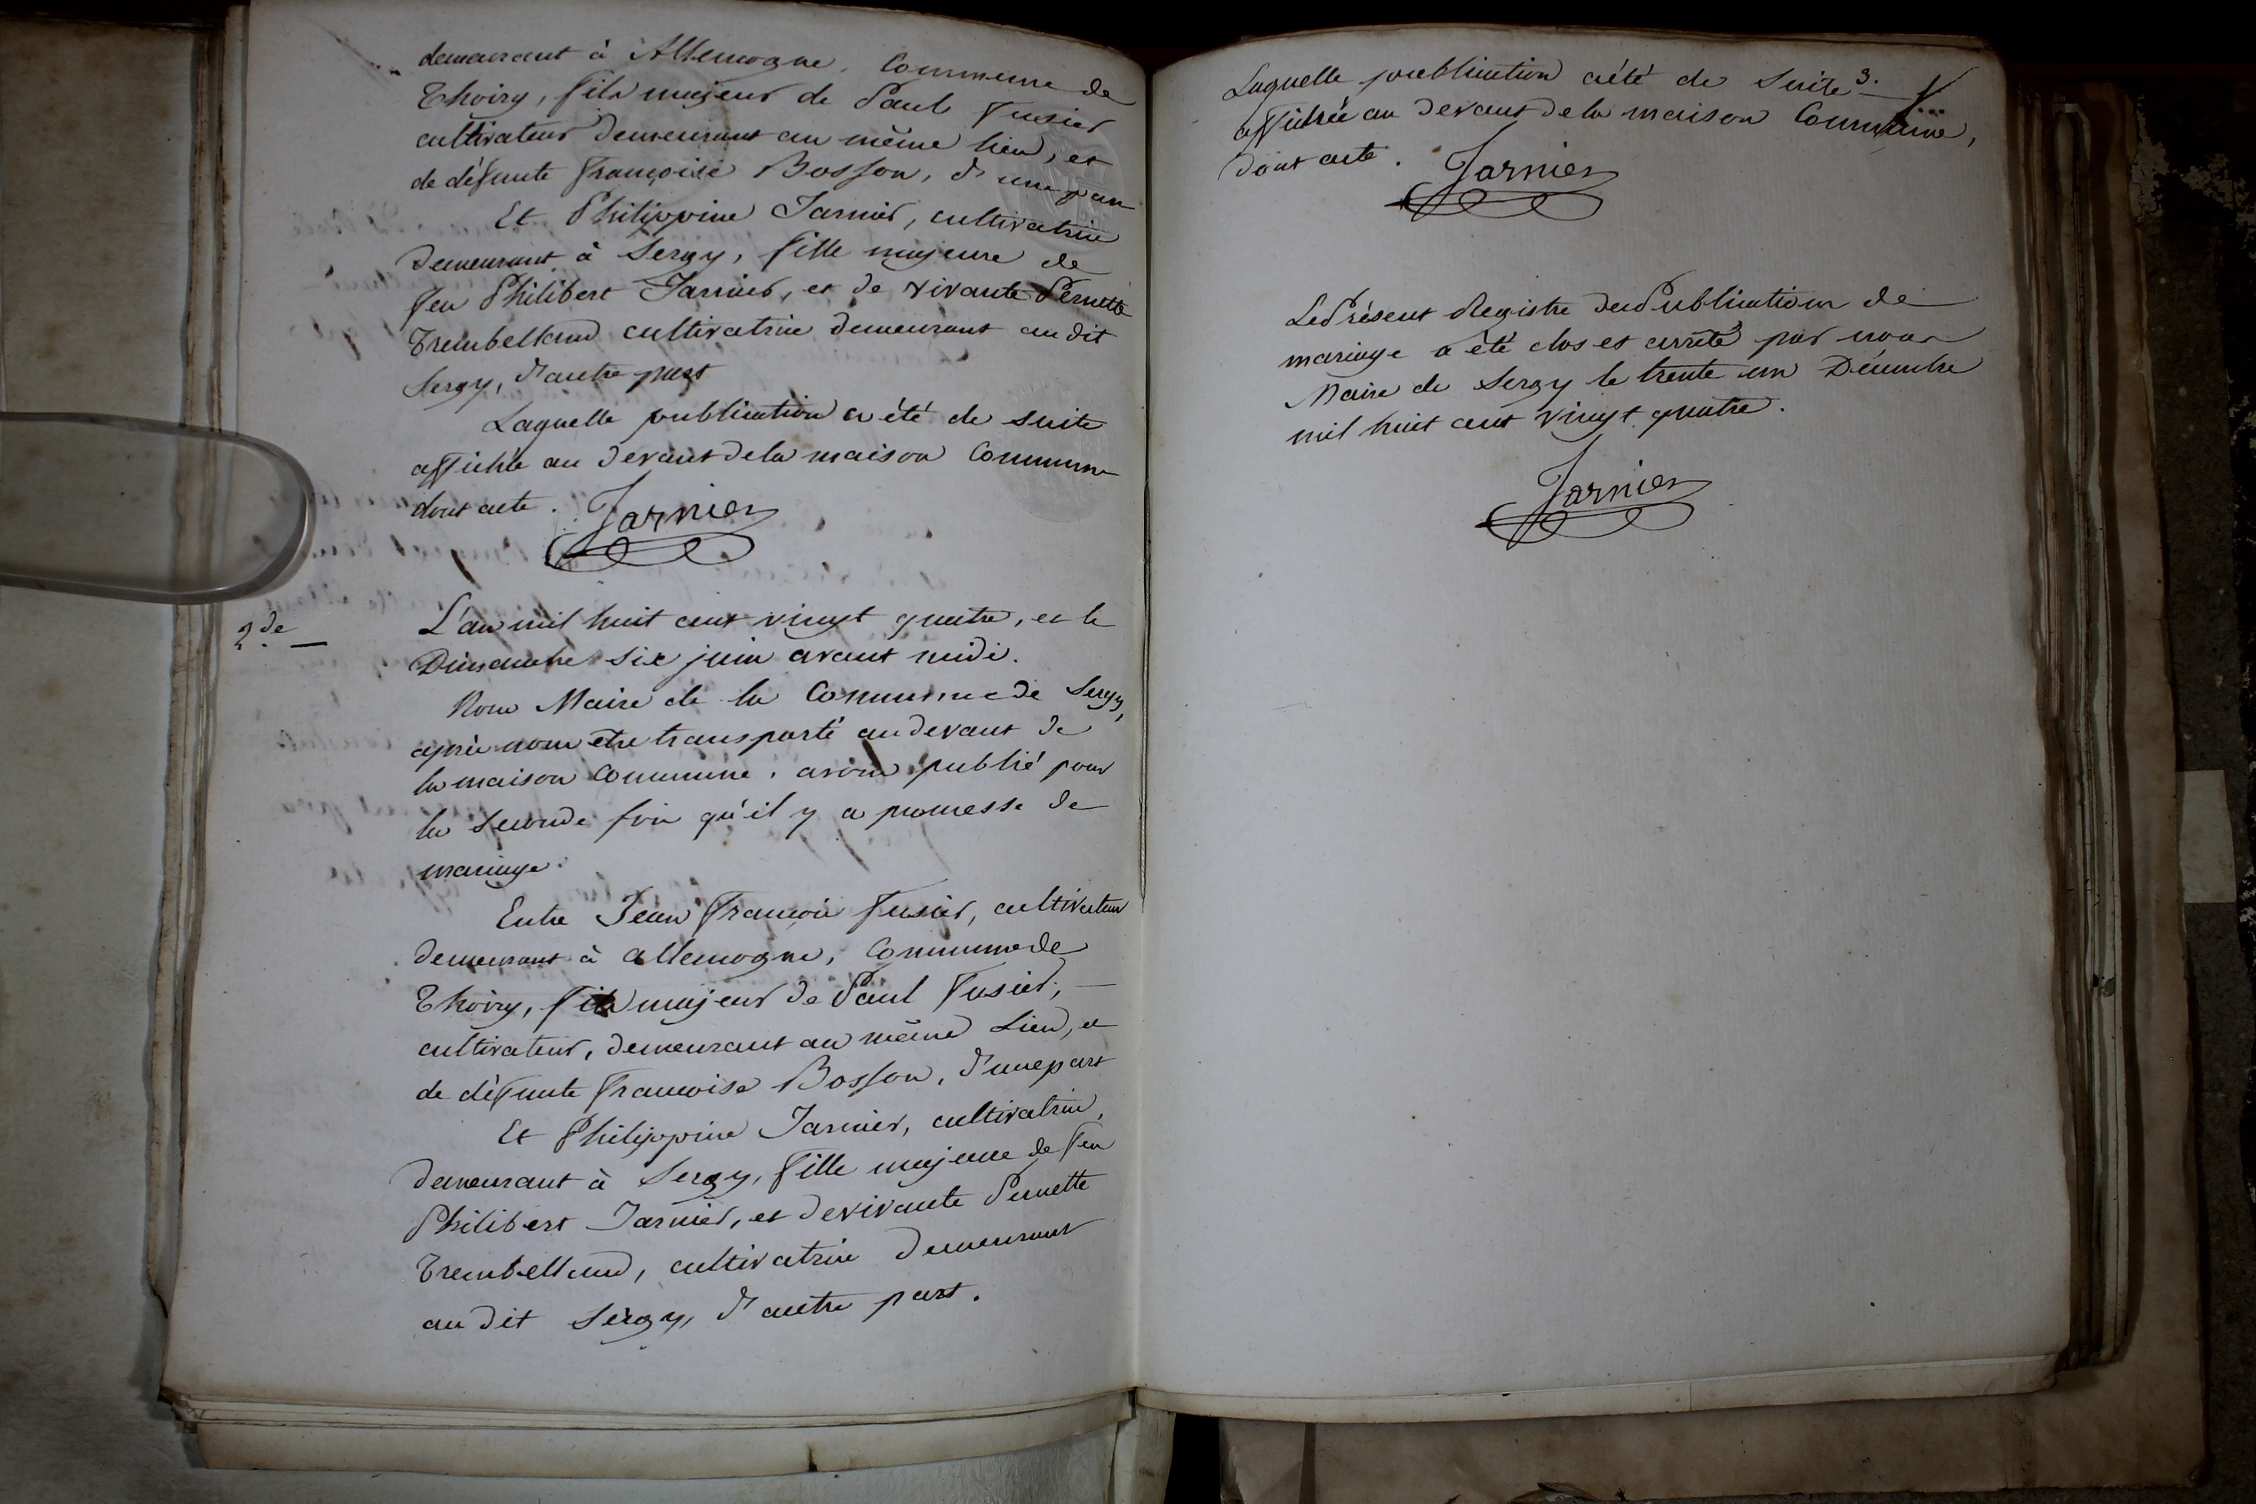 demeurant à Allemogne, Commune de
Thoiry, fils majeur de Paul Fusier
cultivateur demeurant au même lieu, et
de défunte françoise Bosson, d'une part
Et Philippine Jarnier, cultivatrice
demeurant à Sergy, fille majeure de
feu Philibert Jarnier, et de vivante Pernette
Trembelland cultivatrice demeurant au dit
Sergy, d'autre part
Laquelle publication a été de suite
affichée au devant de la maison Commune
dont acte. Jarnier
2de.
L'an mil huit cent vingt quatre, et le
Dimanche six juin avant midi.
Nous Maire de la Commune de Sergy,
après nous être transporté au devant de
la maison Commune, avons publié pour
la seconde fois qu'il y a promesse de
mariage.
Entre Jean François Fusier, cultivateur
demeurant à allemogne, Commune de
Thoiry, fils majeur de Paul Fusier,
cultivateur, demeurant au même Lieu, et
de défunte Françoise Bosson, d'une part
Et Philippine Jarnier, cultivatrice,
demeurant à Sergy, fille majeure de feu
Philibert Jarnier, et de vivante Pernette
Trembelland, cultivatrice demeurant
au dit Sergy, d'autre part.
3.
Laquelle publication a été de Suite
affichée au devant de la maison Commune,
dont acte. Jarnier
Le Présent Registre des Publications de
mariage a été clos et arrêté par nous
Maire de Sergy le trente un Décembre
mil huit cent vingt quatre.
Jarnier